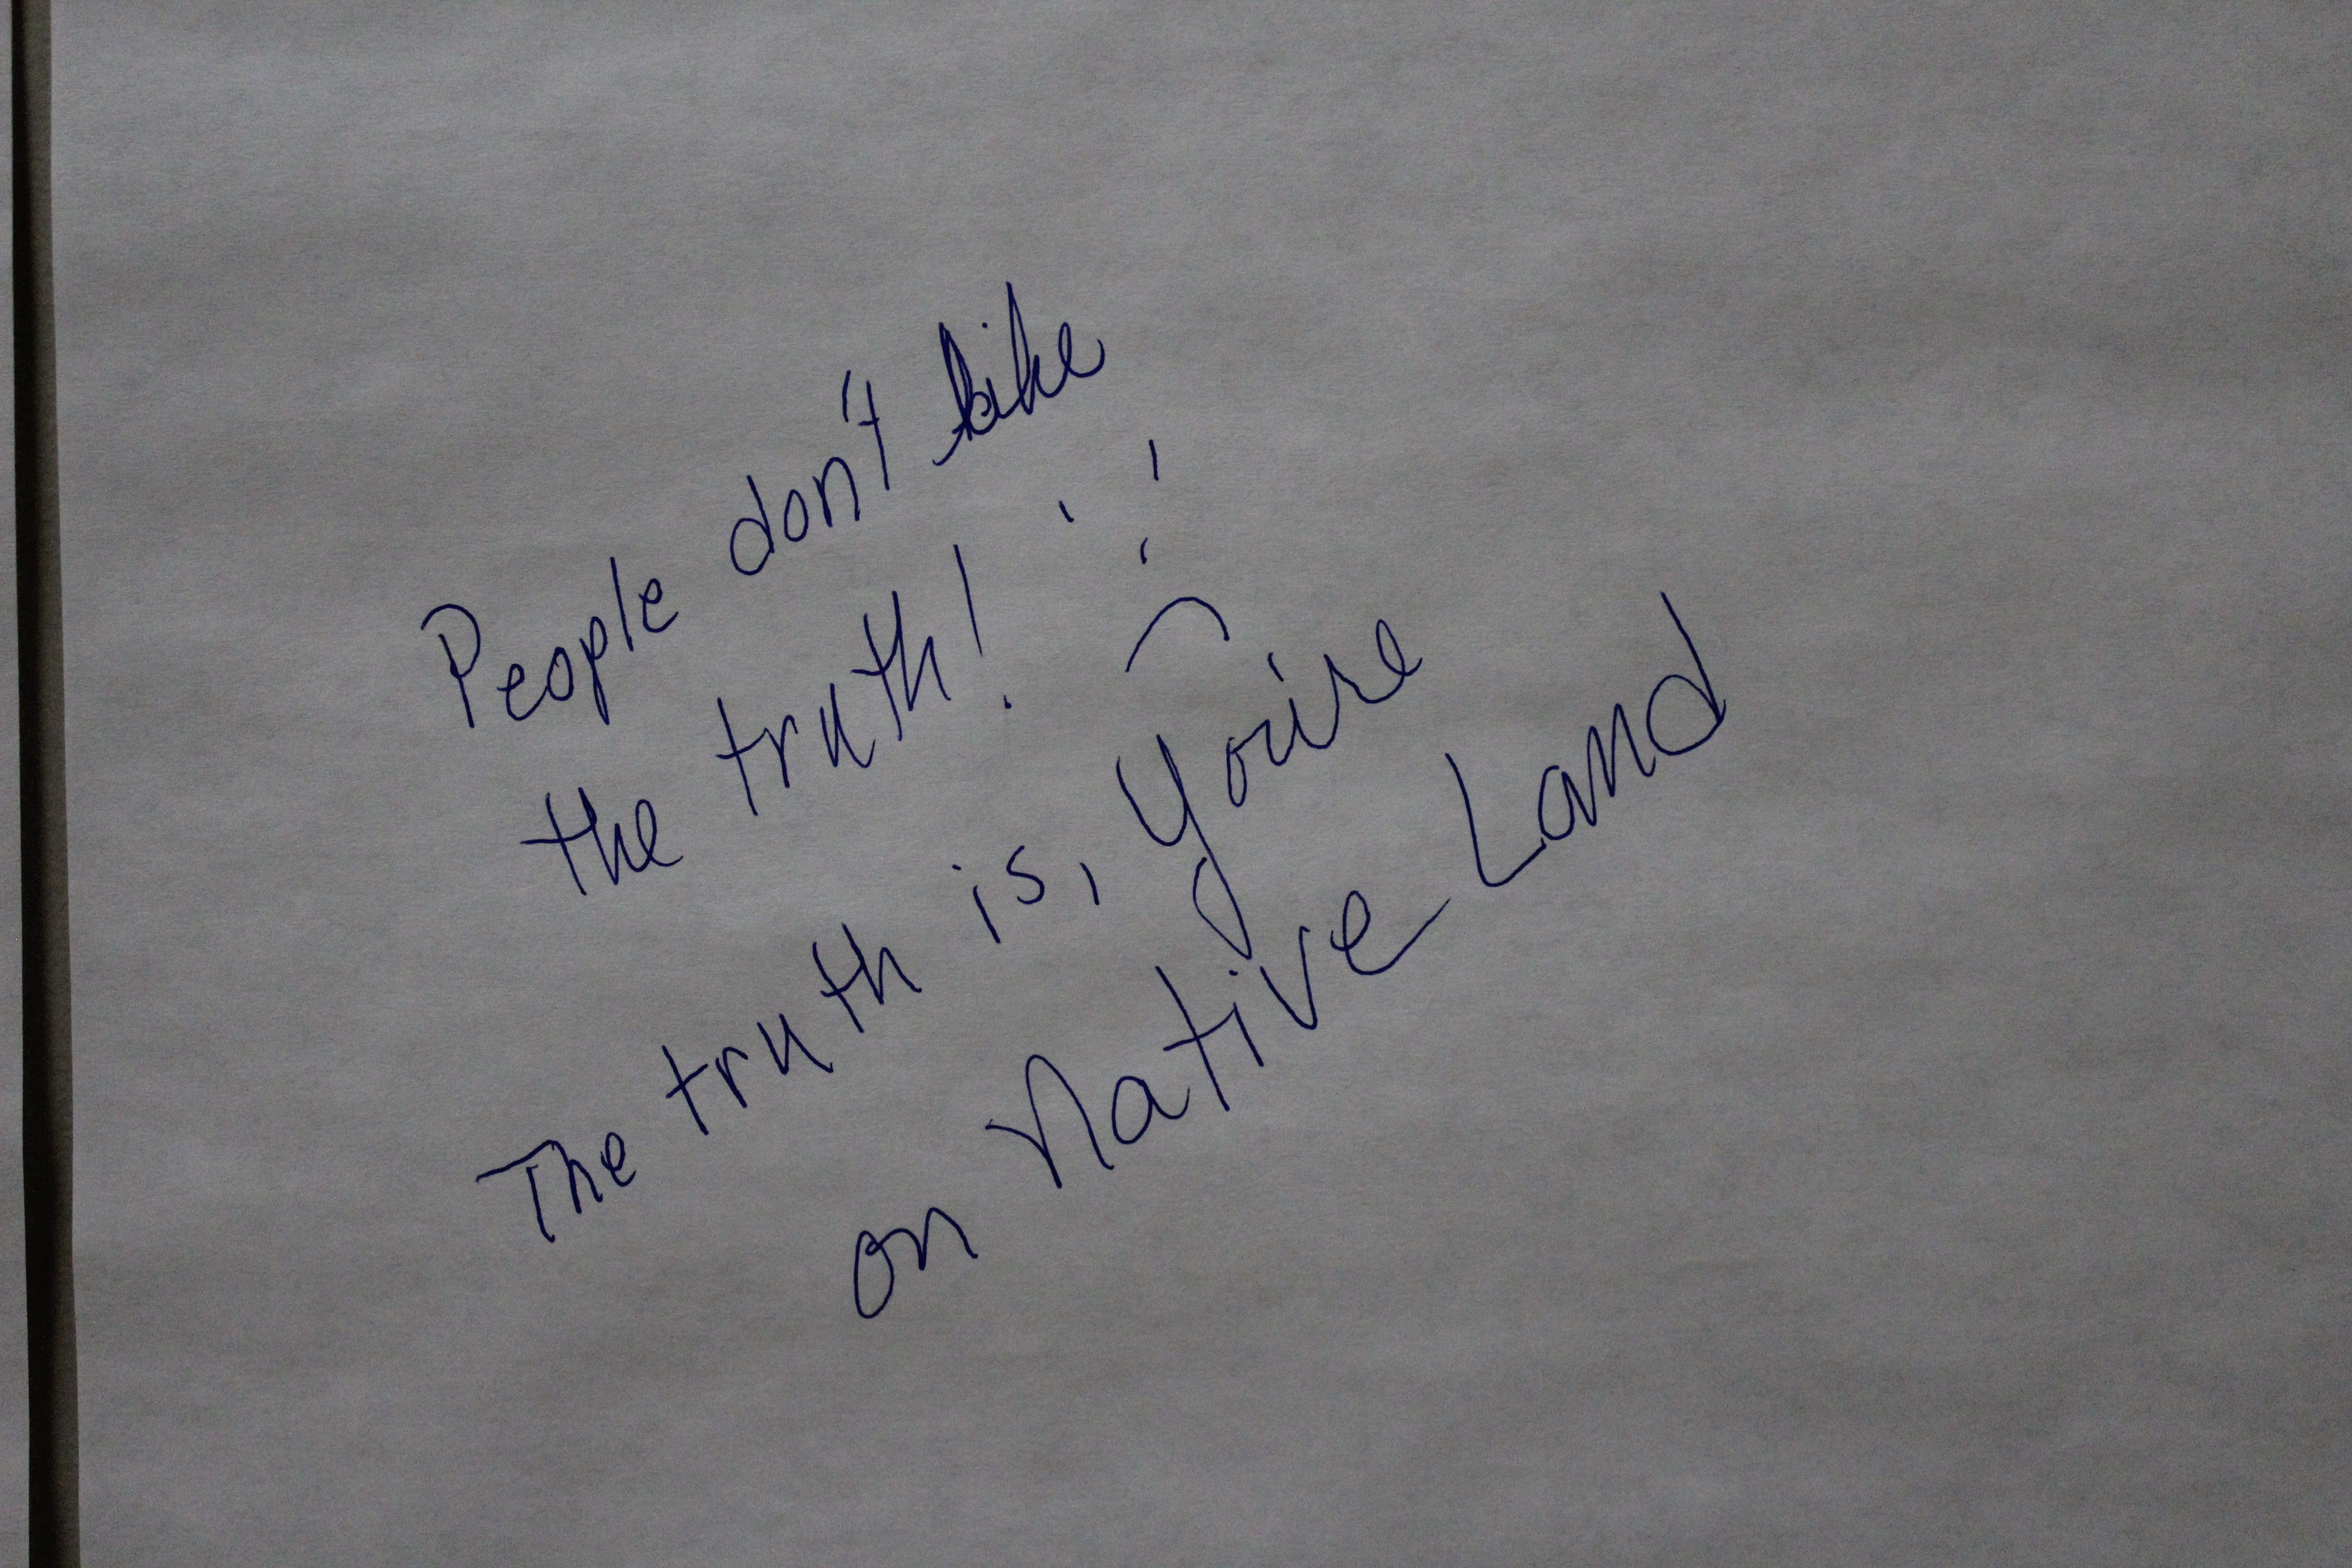 People don't like
the truth!
The truth is, you're
on Native Land